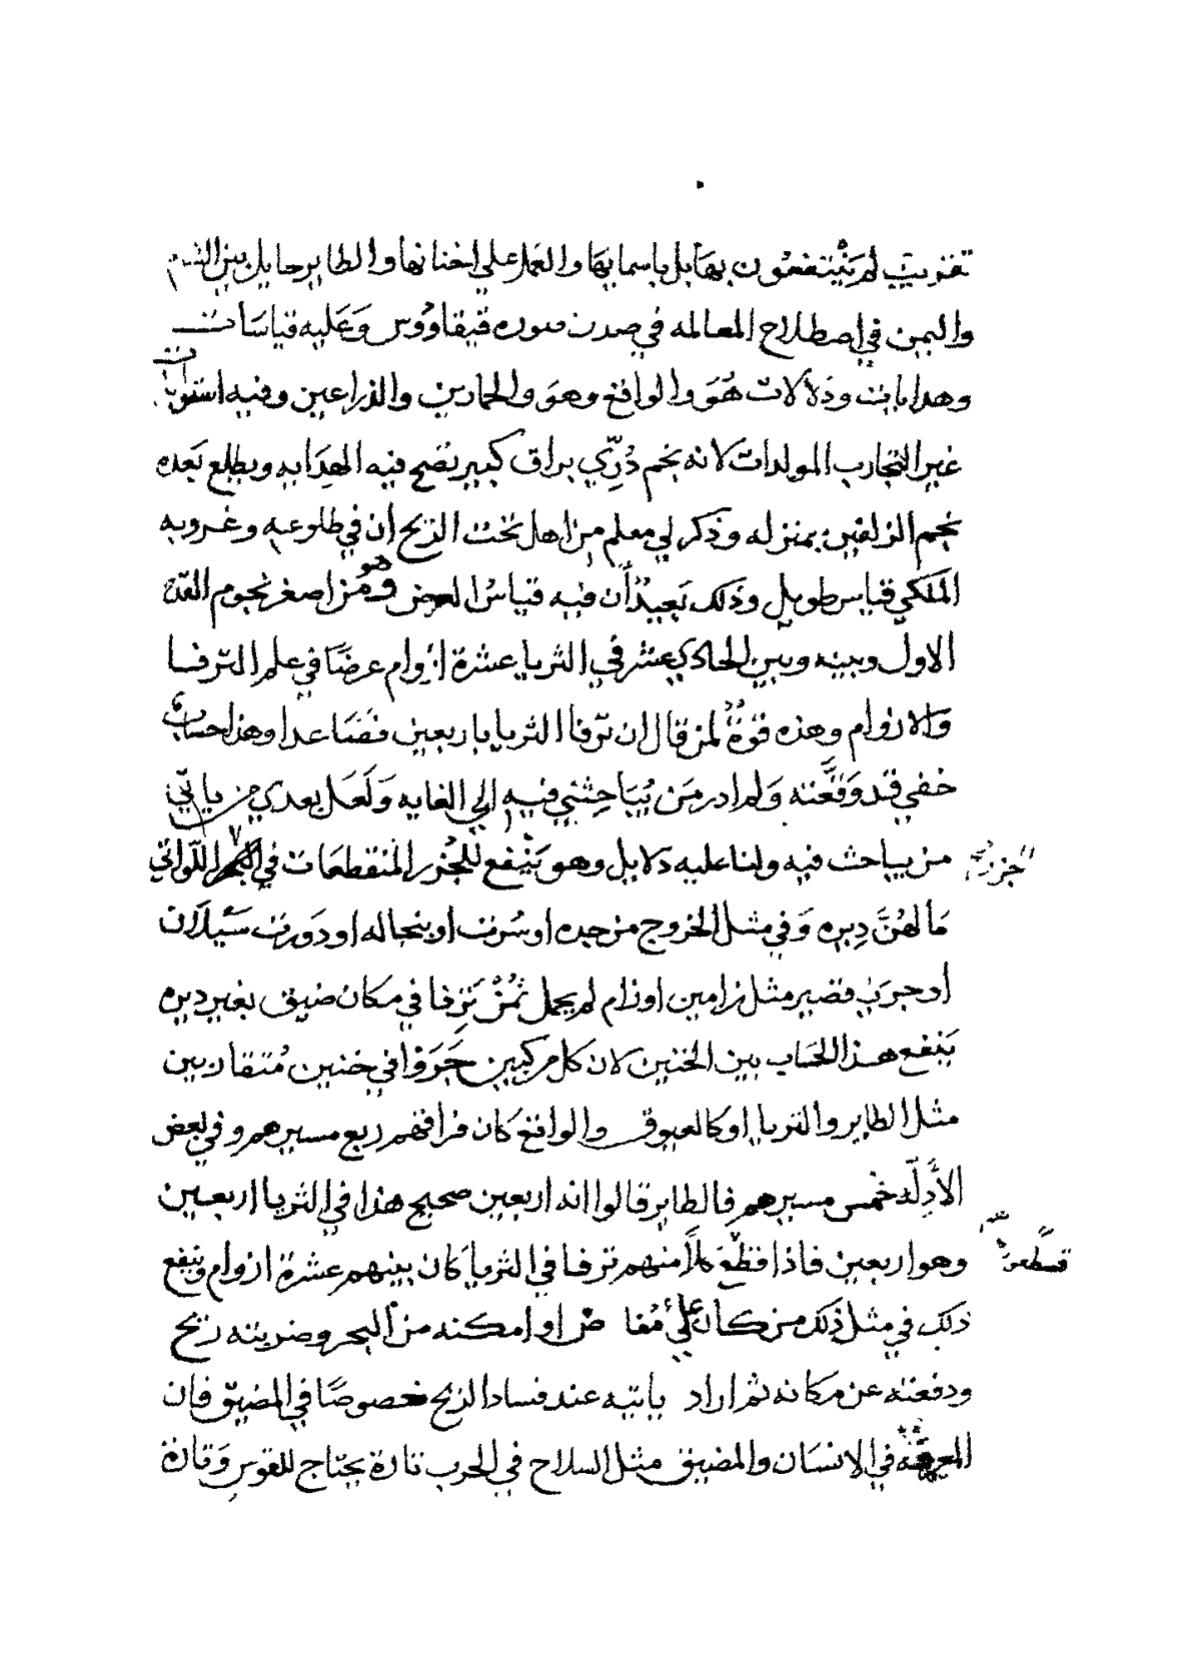 تقريب لم ينتفعون بها بل باسمايها والعمل علي اخنانها والطاير حايل بين الشام
واليمن في اصطلاح المعالمه في صدر سوره قيقاووس وعليه قياسات
وهدايات ودلالات هو والواقع وهو والحمارين والذراعين وفيه استوايات
غير التجارب المولدات لانه نجم دري براق كبير نصح فيه الهدايه ويطلع بعده
نجم الزلفين بمنزله وذكر لي معلم من اهل تحت الريح ان في طلوعه وغروبه
الملكي قياس طويل وذلك بعيد ان فيه قياس العرض وهو من اصغر نجوم القدر
الاول وبينه وبين الحادي عشر في الثريا عشرة ازوام عرضا في علم الترفا
والازوام وهذه قوة لمن قال ان ترفا الثريا باربعين فصاعدا وهذا حساب
خفي قد وقعته ولم ادر من يباحثني فيه الي الغايه ولعل بعدي من ياتي
من يباحث فيه ولنا عليه دلايل وهو ينفع للجزر المنقطعات في البحر اللواتي
الجزر
ما لهن ديره وفي مثل الخروج من جده او سرت او بنجاله او دورت سيلان
او جريت قصير مثل زامين او زام لم يحمل ثمن ترفا في مكان ضيق بغير ديره
ينفع هذا الحساب بين الخنين لان كل مركبين جروا في خنين متقاربين
مثل الطاير والثريا او كالعيوق والواقع كان فراقهم ربع مسيرهم وفي بعض
الأدلة خمس مسيرهم فالطاير قالوا انه اربعين صحيح هذا في الثريا اربعين
وهو اربعين فاذا قطع كلا منهم ترفا في الثريا كان بينهم عشرة ازوام وينفع
ذلك في مثل ذلك من كان علي مغاص او امكنه من البحر وضربته ريح
ودفعته عن مكانه ثم اراد ياتيه عند فساد الريح خصوصا في المضيق فان
المعرفة في الانسان والمضيق مثل السلاح في الحرب تارة يحتاج للقوس وتارة